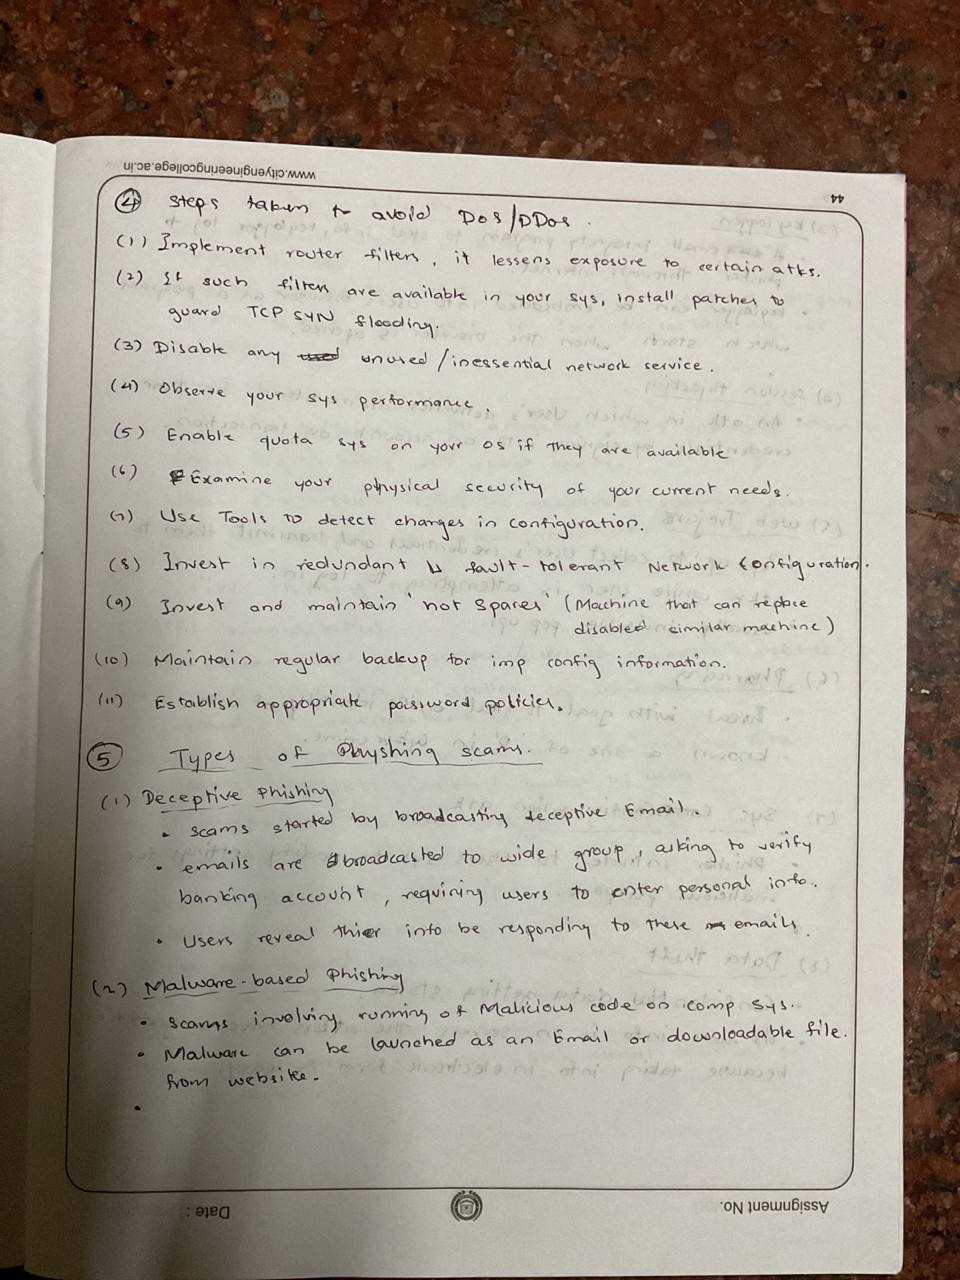 www.cityengineeringcollege.ac.in
44
(4) Steps taken to avoid DoS/DDos.
(1) Implement router filters, it lessens exposure to certain atks.
(2) If such filters are available in your sys, install patches to
guard TCP SYN flooding.
(3) Disable any unused/inessential network service.
(4) Observe your sys performance.
(5) Enable quota sys on your OS if they are available
(6) Examine your physical security of your current needs.
(7) Use Tools to detect changes in configuration.
(8) Invest in redundant & fault-tolerant Network Configuration.
(9) Invest and maintain 'hot Spares' (Machine that can replace
disabled similar machine)
(10) Maintain regular backup for imp config information.
(11) Establish appropriate password policies.
(5) Types of Physhing scams.
(1) Deceptive Phishing
• scams started by broadcasting deceptive Email.
• emails are broadcasted to wide group, asking to verify
banking account, requiring users to enter personal info.
• Users reveal thier info be responding to these emails
(2) Malware-based Phishing
• scams involving running of Malicious code on comp sys.
• Malware can be launched as an Email or downloadable file.
from website.
•
Assignment No.
Date :